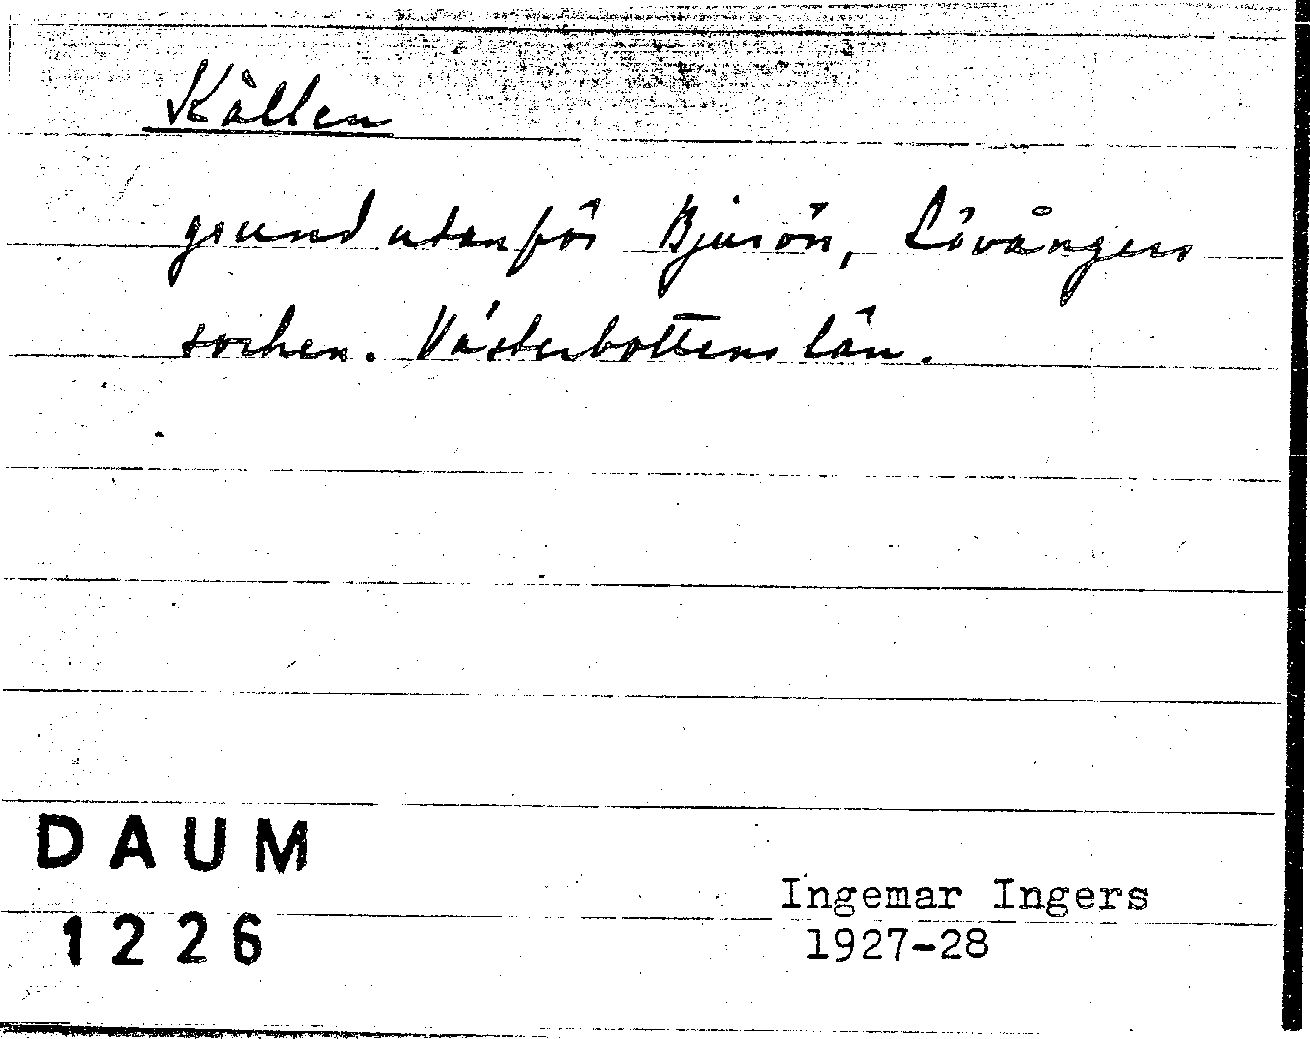 Källen
grund utanför Bjurön, Lövångers
socken. Västerbottens län.
DAUM
1226
Ingemar Ingers
1927-28